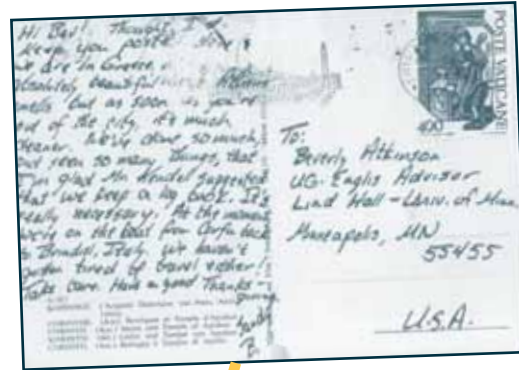 Hi Bev! Thought I'd
keep you posted. Now
we are in Greece.
absolutely beautiful Athens
smells but as soon as you're
out of the city, it's much
cleaner. We've done so much,
and seen so many things, that
I'm glad Mr. Hendel suggested
that we keep a log book. It's
really necessary. At the moment
we're on the boat from Corfu back
to Brindisi, Italy. We haven't
gotten tired of travel either!
Take care. Have a good Thanks-
giving
POSTE VATICANE
400
To:
Beverly Atkinson
UG. Englis Advisor
Lind Hall - Univ. of Minn.
Minneapolis, MN
55455
U.S.A.